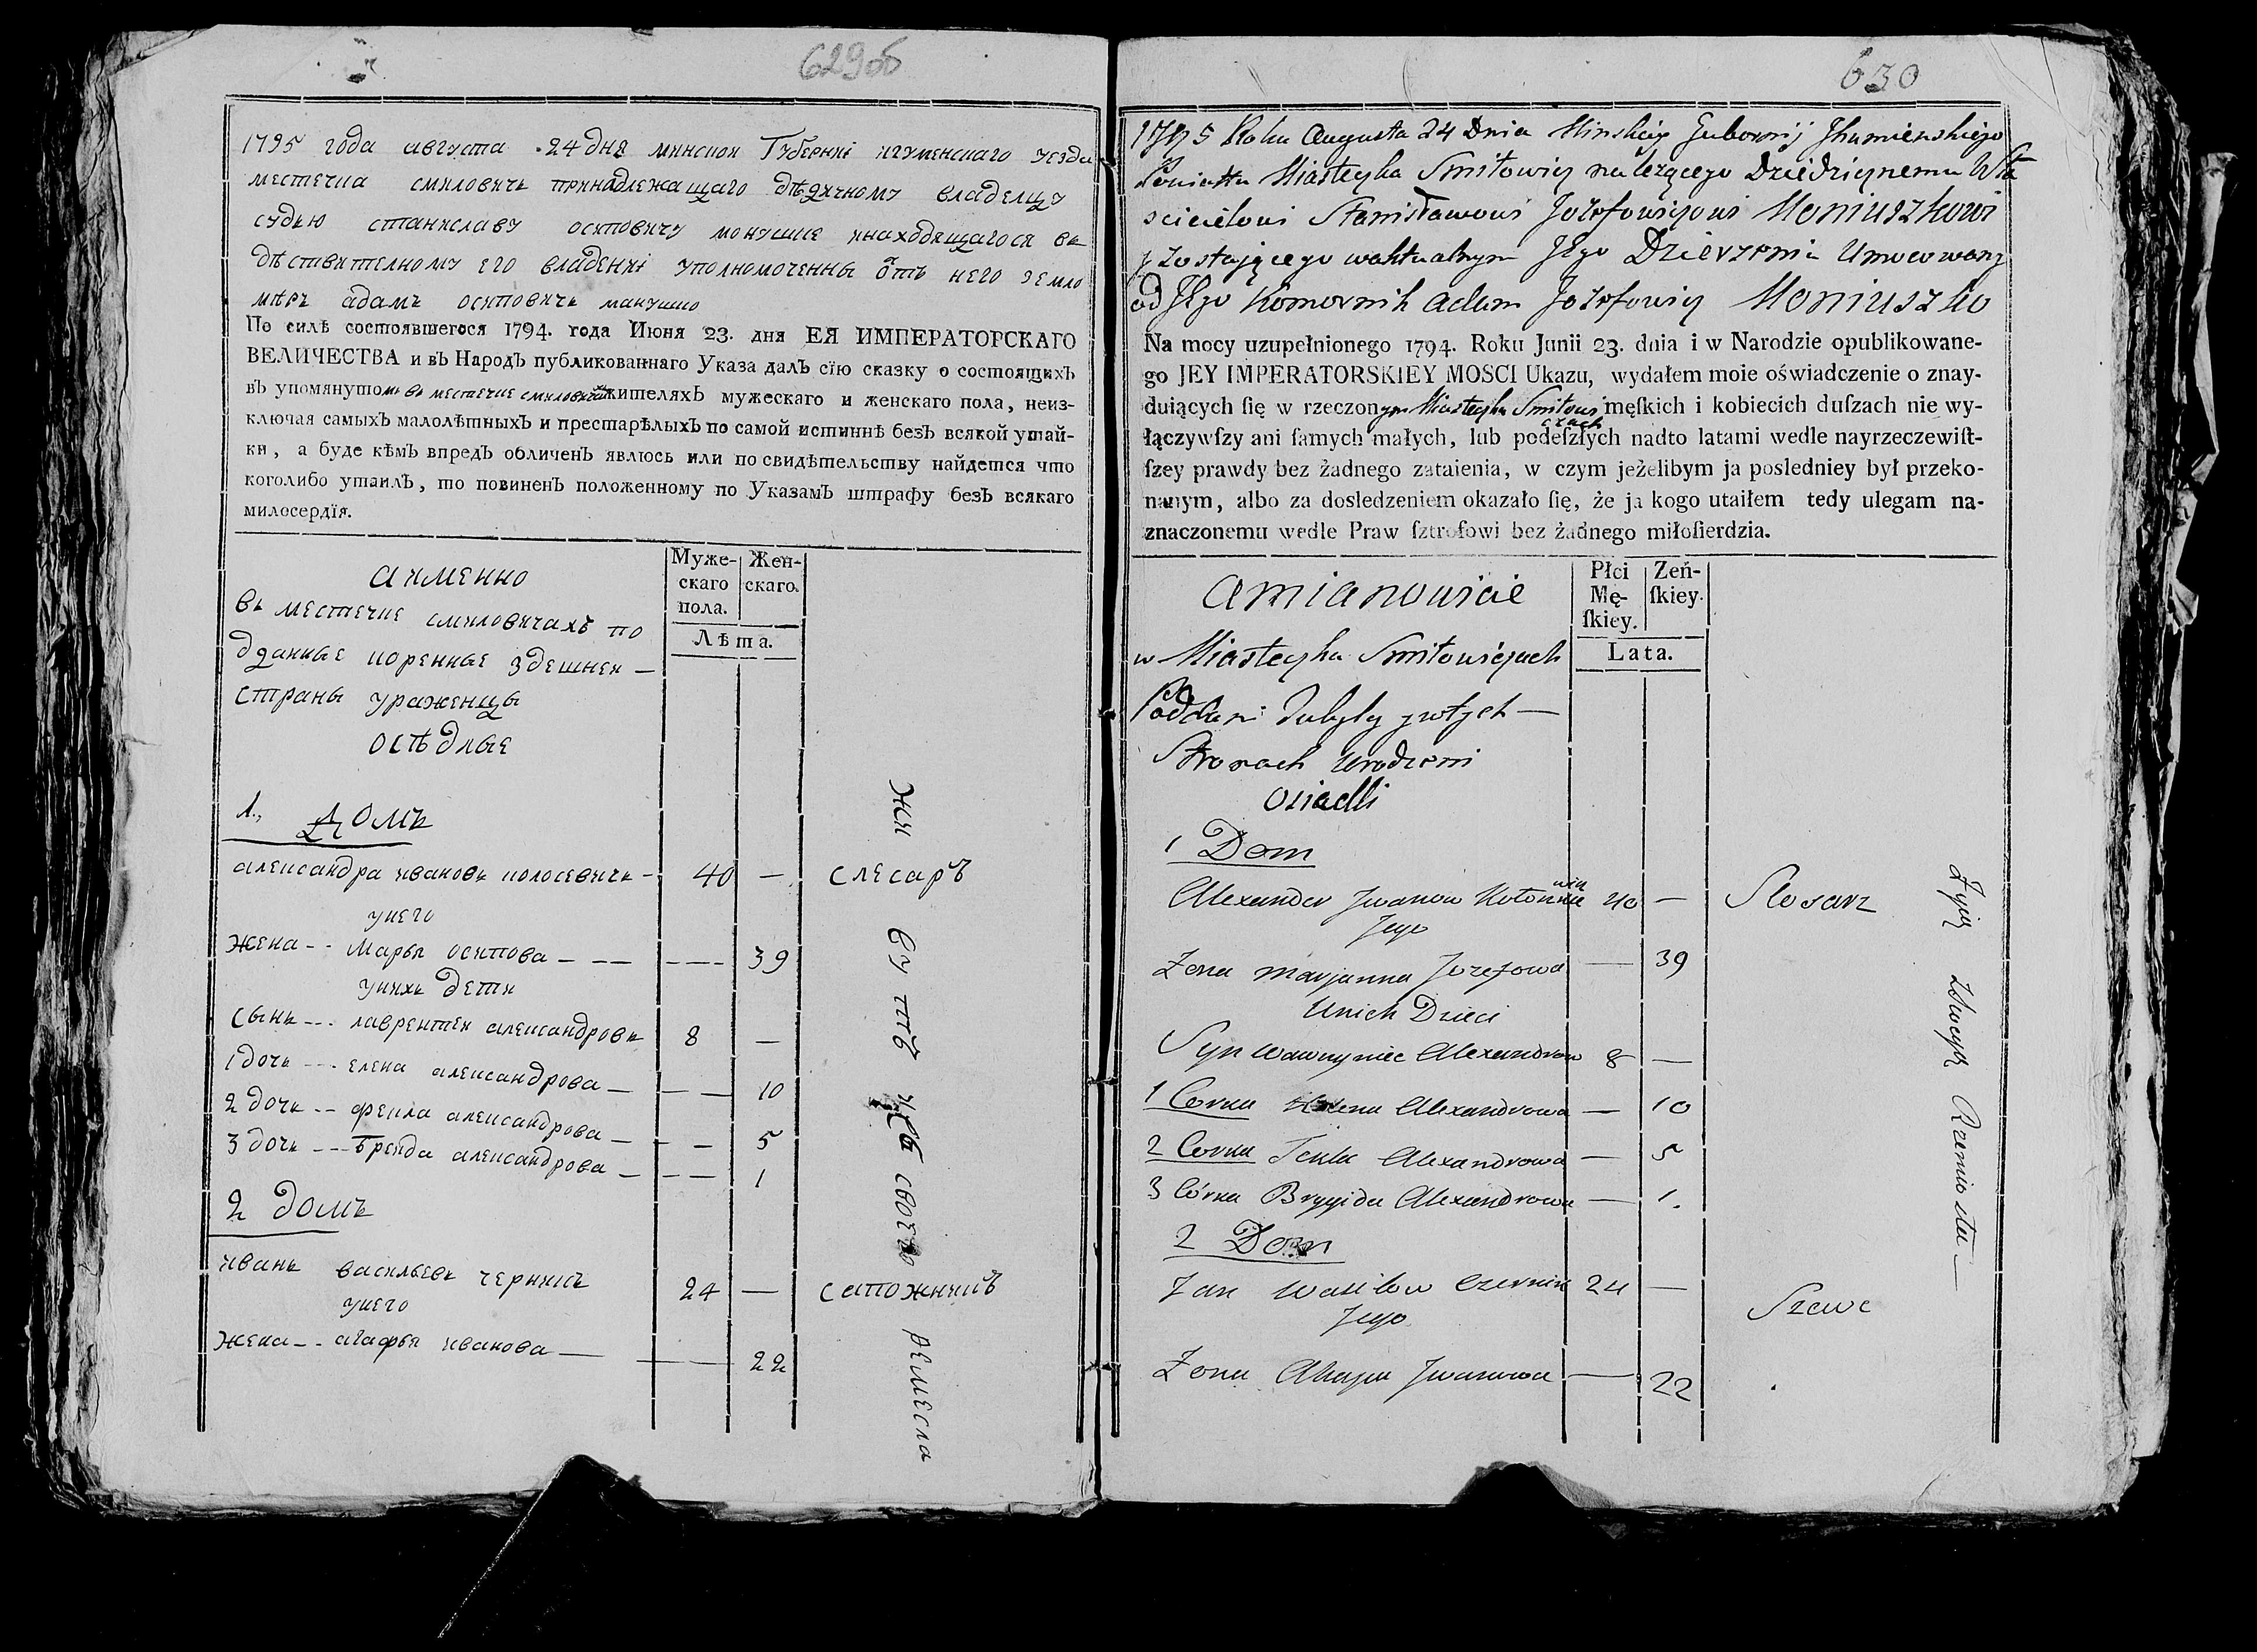 629об
1795 года августа 24 дня минскои Губернiи игуменскаго уезда
местечка смиловичь принадлежащаго дѣдичному владелцу
судью станиславу осиповичу монушке инаходящагося вь
дѣствителному его владенiи уполномоченны отъ него земло
мѣръ адамъ осиповичь манушко
По силѣ состоявшегося 1794. года Июня 23. дня ЕЯ ИМПЕРАТОРСКАГО
ВЕЛИЧЕСТВА и въ Народъ публикованнаго Указа далъ сїю сказку о состоящихъ
въ упомянутомъ въ местечке смиловичи жителяхъ мужескаго и женскаго пола, неиз-
ключая самыхъ малолѣтныхъ и престарѣлыхъ по самой истиннѣ безъ всякой утай-
ки, а буде кѣмъ впредъ обличенъ явлюсь или по свидѣтельству найдется что
коголибо утаилъ, то повиненъ положенному по Указамъ штрафу безъ всякаго
милосердїя.
Муже-
скаго
пола.
Жен-
скаго.
Лѣта.
аименно
вь местечке смиловичахъ по
дданные коренные здешнеи —
страны ураженцы
осѣдлые
1., домъ
александра ивановь колосевичь - 40 — слесаръ
унего
жена -- Марья осипова — — — --- 39
унихь дети
сынь --- лаврентеи александровь 8 —
1 дочь --- елена александрова — — — 10
2 дочь -- фекла александрова — - — 5
3 дочь --- брекида александрова — - — 1
2 домъ
ивань васильевь черникъ 24 — сапожникъ
унего
жена -- агафья иванова — — 22
жи вутъ изъ своего ремесла
630
1795 Roku Augusta 24 Dnia Minskiey Gubernij Jhumienskiego
Powiatu Miasteczka Smiłowicz należącego Dziedzicznemu Wła
scicielowi Stanisławowi Jozefowiczowi Moniuszkowi
y zostaiącego waktualnym Jego Dzierzeniu Umocowany
od Jego Komornik Adam Jozefowicz Moniuszko
Na mocy uzupełnionego 1794. Roku Junii 23. dnia i w Narodzie opublikowane-
go JEY IMPERATORSKIEY MOSCI Ukazu, wydałem moie oświadczenie o znay-
duiących ſię w rzeczonym Miasteczku Smiłowi czach męſkich i kobiecich duſzach nie wy-
łączywſzy ani ſamych małych, lub podeſzłych nadto latami wedle nayrzeczewiſt-
ſzey prawdy bez żadnego zataienia, w czym jeżelibym ja posledniey był przeko-
nanym, albo za dosledzeniem okazało ſię, że ja kogo utaiłem tedy ulegam na-
znaczonemu wedle Praw ſztrofowi bez żadnego miłoſierdzia.
Płci
Mę-
ſkiey.
Zeń-
ſkiey.
Lata.
amianowicie
w Miasteczku Smiłowiczach
Poddani tutyszy ywtych —
Stronach Urodzeni
Osiadli
1 Dom
Alexander Jwanow 40 — Slosarz
Jego
Zona Maryanna Jozefowa — 39
Unich Dzieci
Syn Wawrzyniec Alexandrow 8 —
1 Corka Helena Alexandrowa — 10
2 Corka Tekla Alexandrowa — 5
3 Córka Brygida Alexandrowa — 1.
2 Dom
Jan Wasilow Czernik 24 — Szewc
Jego
Zona Ahapa Jwanowa — 22
Zyią Rzemiosła —